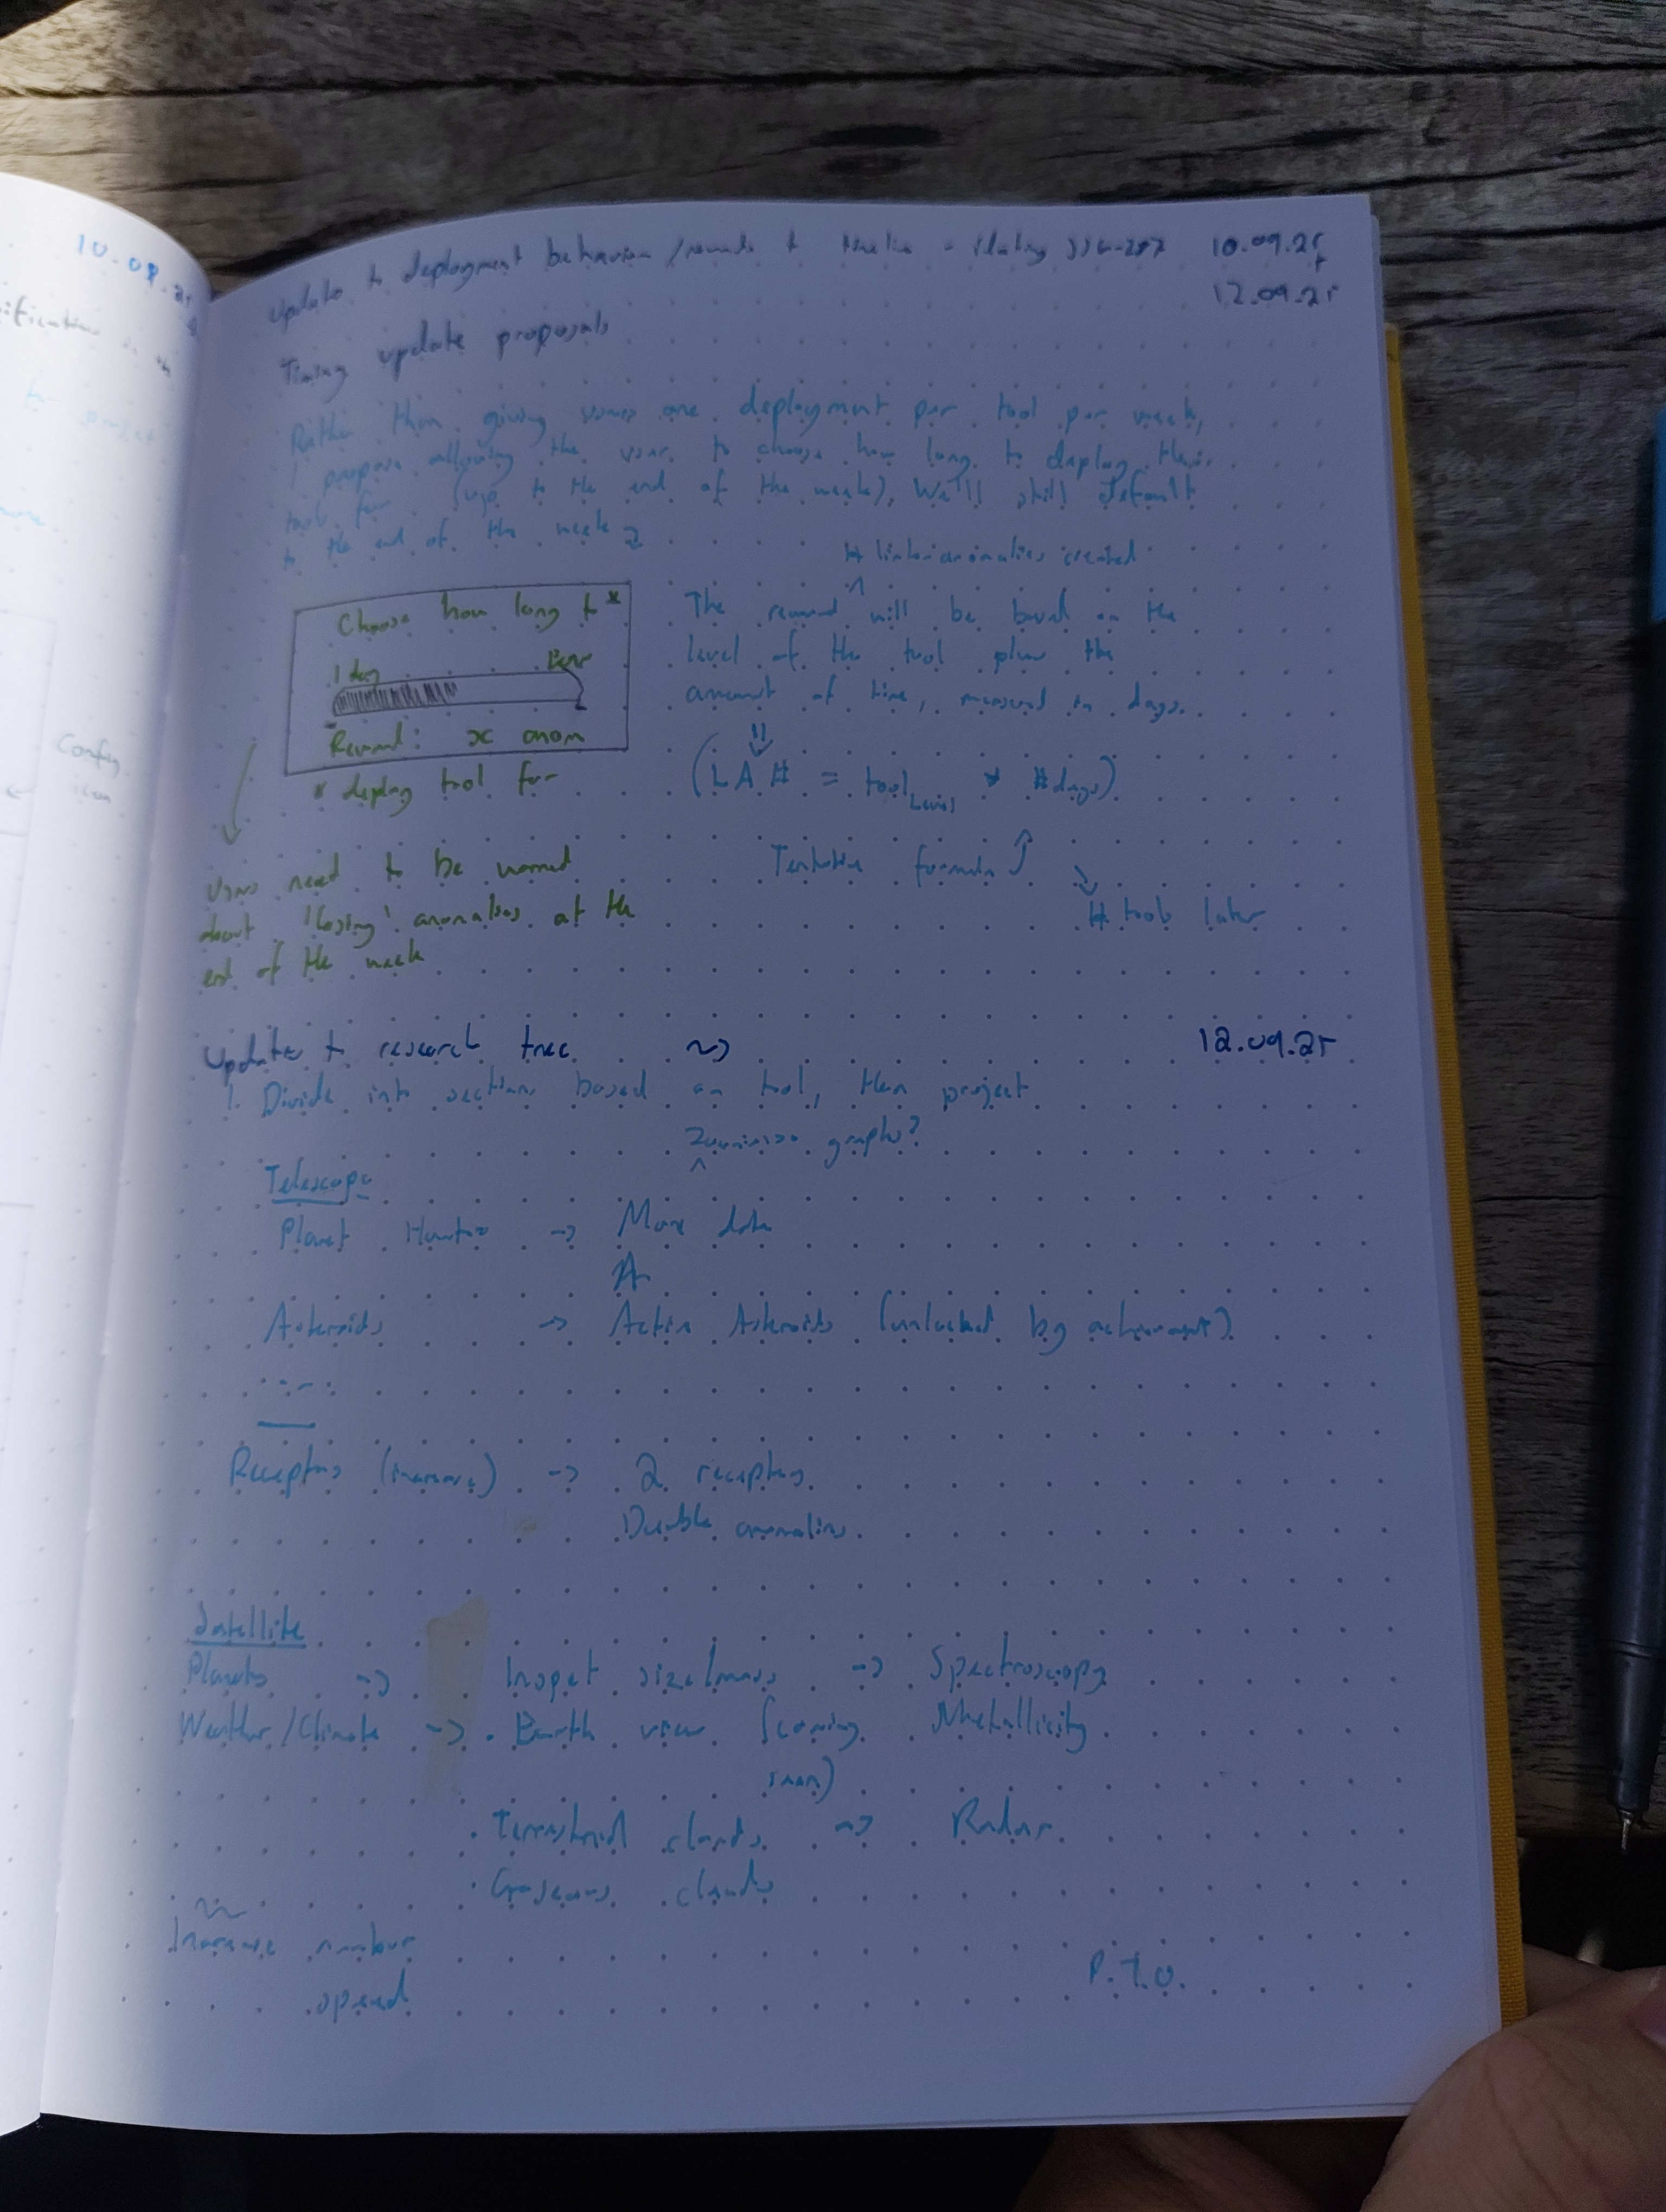 10.09.25
Update to deployment behaviour / rewards + timeline - 10.09.25
+
12.09.25
Timing update proposals
Rather than giving users one deployment per tool per week,
I propose allowing the user to choose how long to deploy their
tool for (up to the end of the week). We'll still default
to the end of the week
# linked anomalies created
Choose how long to *
1 day
Reward: x anom
* deploy tool for
The reward will be based on the
level of the tool plus the
amount of time, measured in days.
(LA# = tool Level * #days)
Tentative formula
# tools later
Users need to be warned
about 'losing' anomalies at the
end of the week
Config
Update to research tree ~> 12.09.25
1. Divide into sections based on tool, then project
graphs?
Telescope
Planet Hunters -> More data
Asteroids -> Active Asteroids (unlocked by achievement)
Receptors (increase) -> 2 receptors
Double anomalies
Satellite
Planets -> Inspect size/mass -> Spectroscopy
Weather/Climate -> . Earth view (coming soon) Metallicity
. Terrestrial clouds -> Radar
. Gaseous clouds
Increase number
speed
P.T.O.